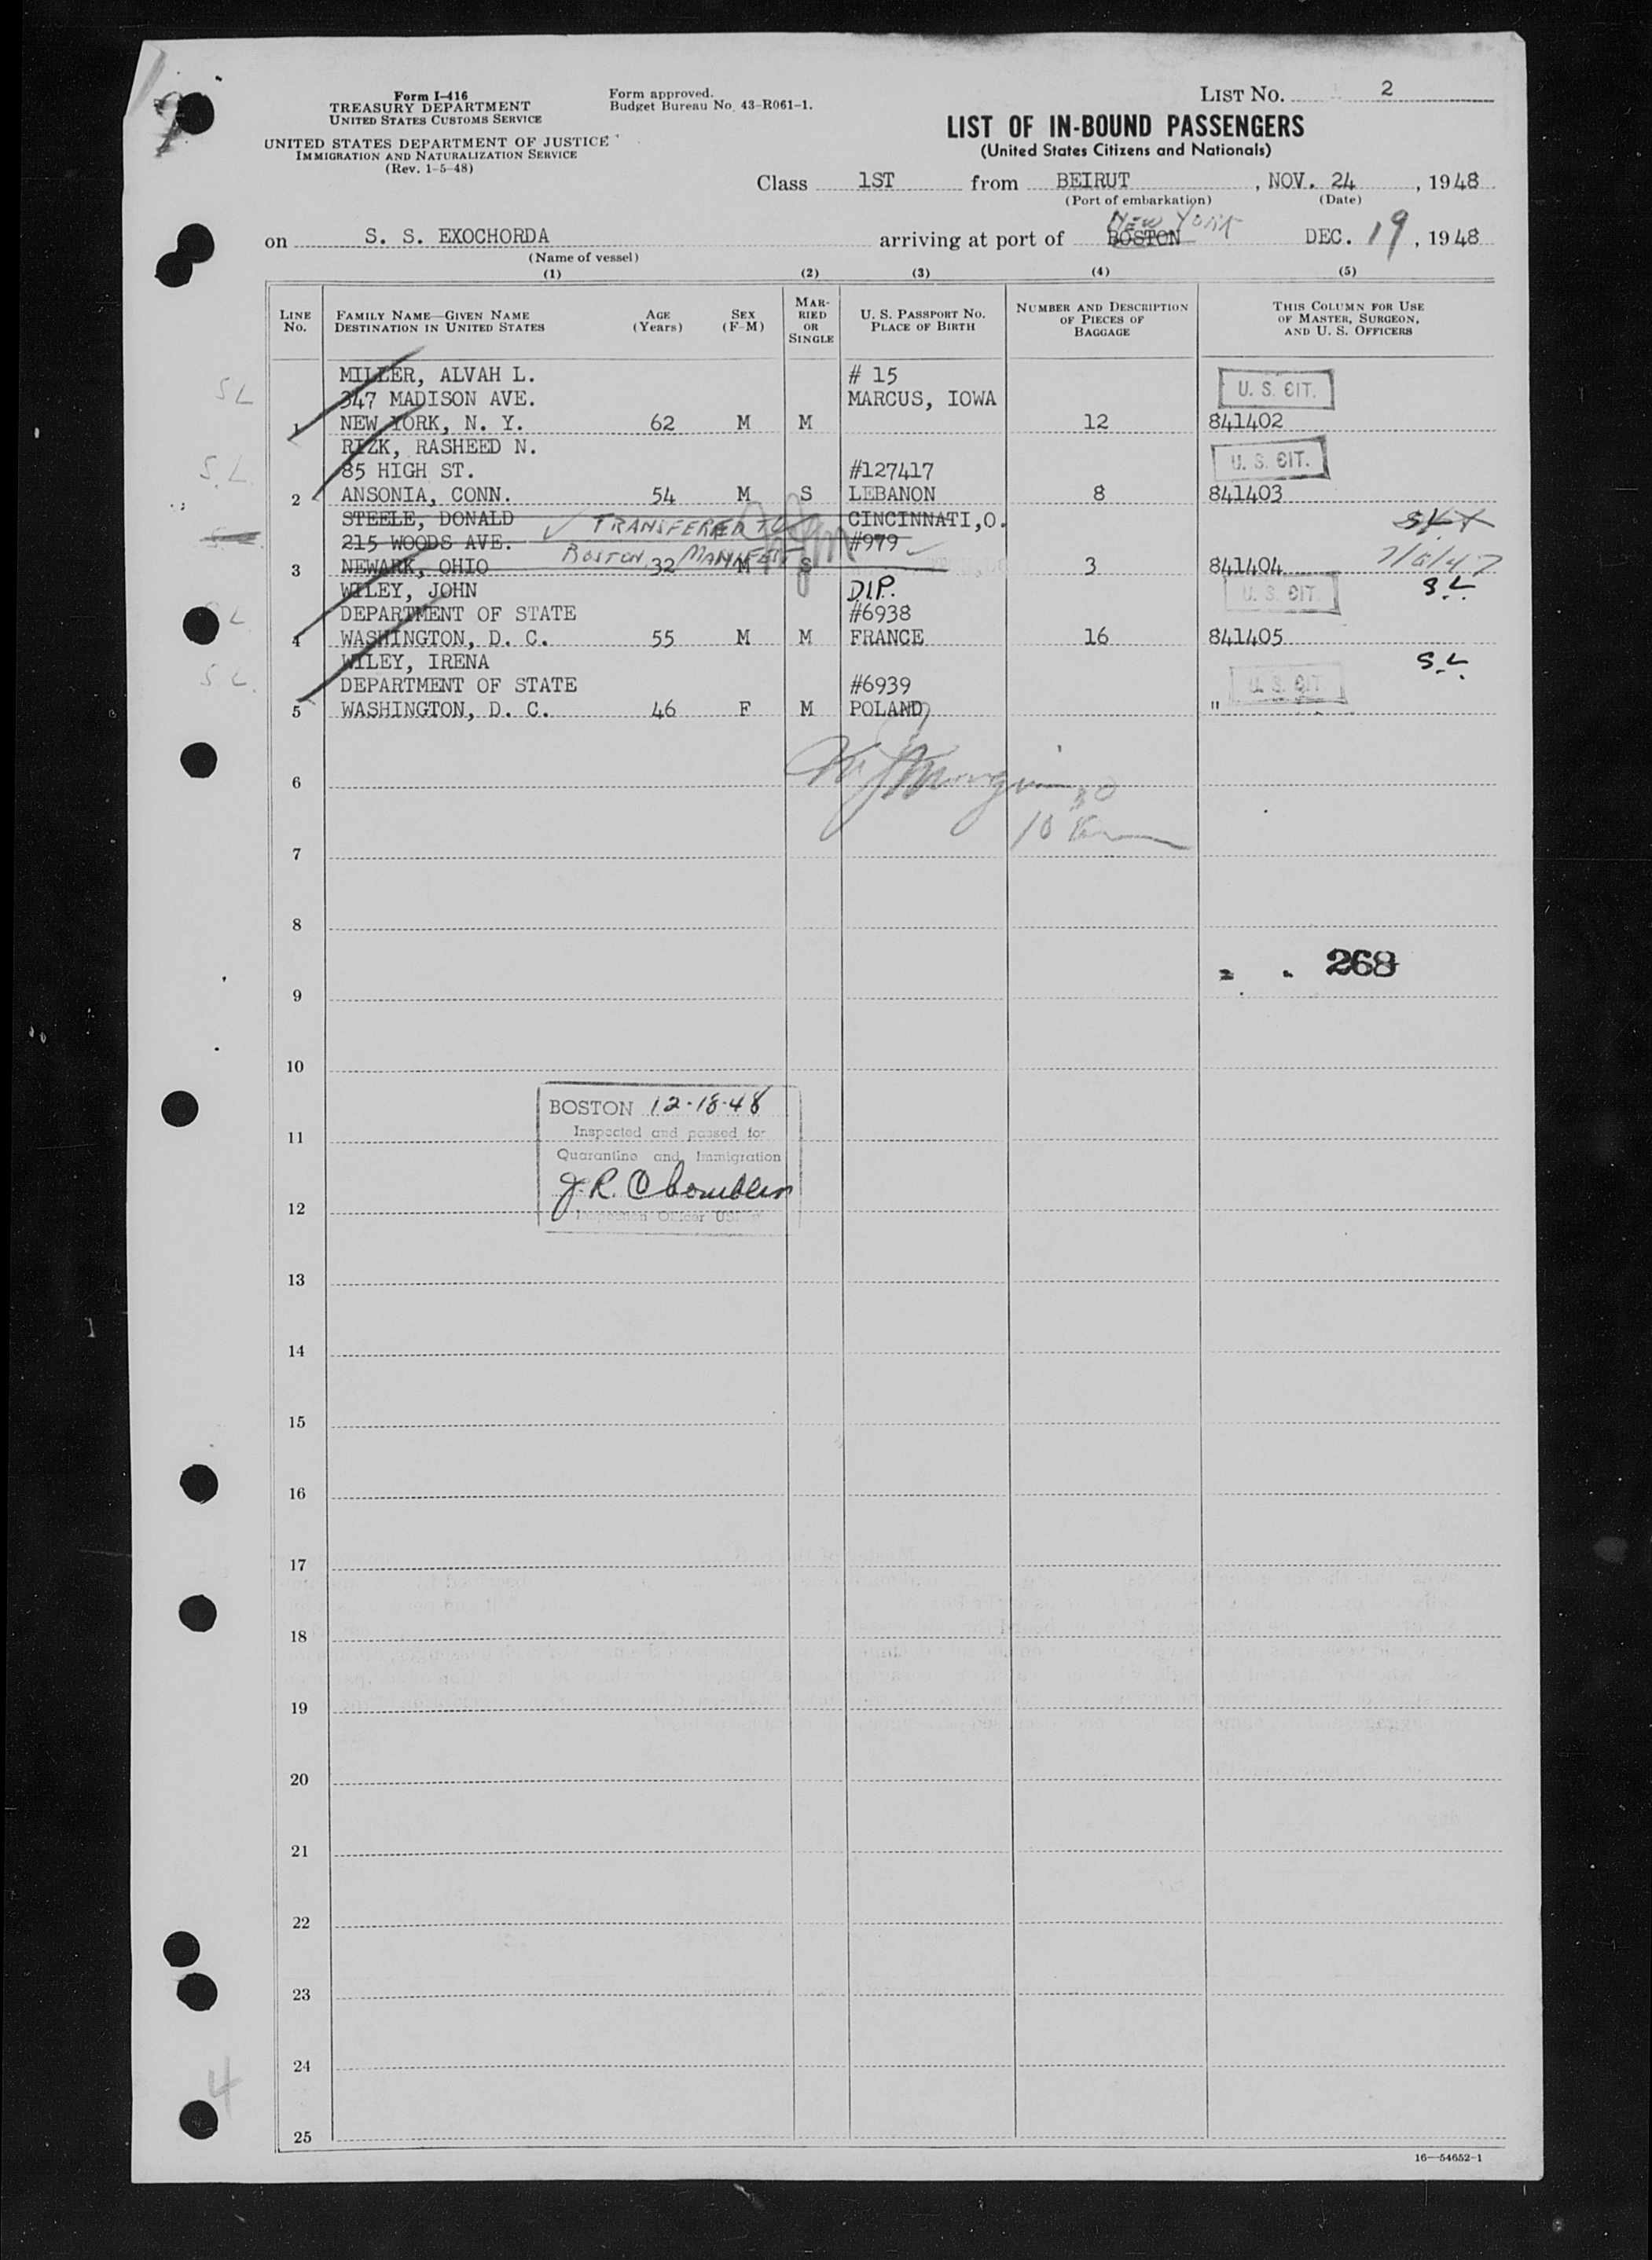 Form I-416
TREASURY DEPARTMENT
UNITED STATES CUSTOMS SERVICE
UNITED STATES DEPARTMENT OF JUSTICE
IMMIGRATION AND NATURALIZATION SERVICE
(Rev. 1-5-48)
Form approved.
Budget Bureau No. 43-R061-1.
LIST NO. 2
LIST OF IN-BOUND PASSENGERS
(United States Citizens and Nationals)
Class 1ST from BEIRUT, NOV. 24, 1948
(Port of embarkation) (Date)
NEW YORK
on S. S. EXOCHORDA arriving at port of BOSTON DEC. 19, 1948
(Name of vessel)
(1) (2) (3) (4) (5)
LINE No. FAMILY NAME—GIVEN NAME DESTINATION IN UNITED STATES AGE (Years) SEX (F-M) MARRIED OR SINGLE U. S. PASSPORT NO. PLACE OF BIRTH NUMBER AND DESCRIPTION OF PIECES OF BAGGAGE THIS COLUMN FOR USE OF MASTER, SURGEON, AND U. S. OFFICERS
MILLER, ALVAH L. # 15 U. S. CIT.
SL 347 MADISON AVE. MARCUS, IOWA
1 NEW YORK, N. Y. 62 M M 12 841402
RIZK, RASHEED N. U. S. CIT.
S.L. 85 HIGH ST. #127417
2 ANSONIA, CONN. 54 M S LEBANON 8 841403
STEELE, DONALD TRANSFERED TO CINCINNATI,O.
215 WOODS AVE. BOSTON MANIFEST #979
3 NEWARK, OHIO 32 M S 3 841404
WILEY, JOHN DIP. U. S. CIT. S.L.
L DEPARTMENT OF STATE #6938
4 WASHINGTON, D. C. 55 M M FRANCE 16 841405
WILEY, IRENA S.L.
S L. DEPARTMENT OF STATE #6939 U. S. CIT.
5 WASHINGTON, D. C. 46 F M POLAND "
6
7
8
268
9
10
BOSTON 12-18-48
11
Inspected and passed for
Quarantine and Immigration
J. R. Chomblin
12
Inspection Officer
13
14
15
16
17
18
19
20
21
22
23
24
4
25
16—54652-1